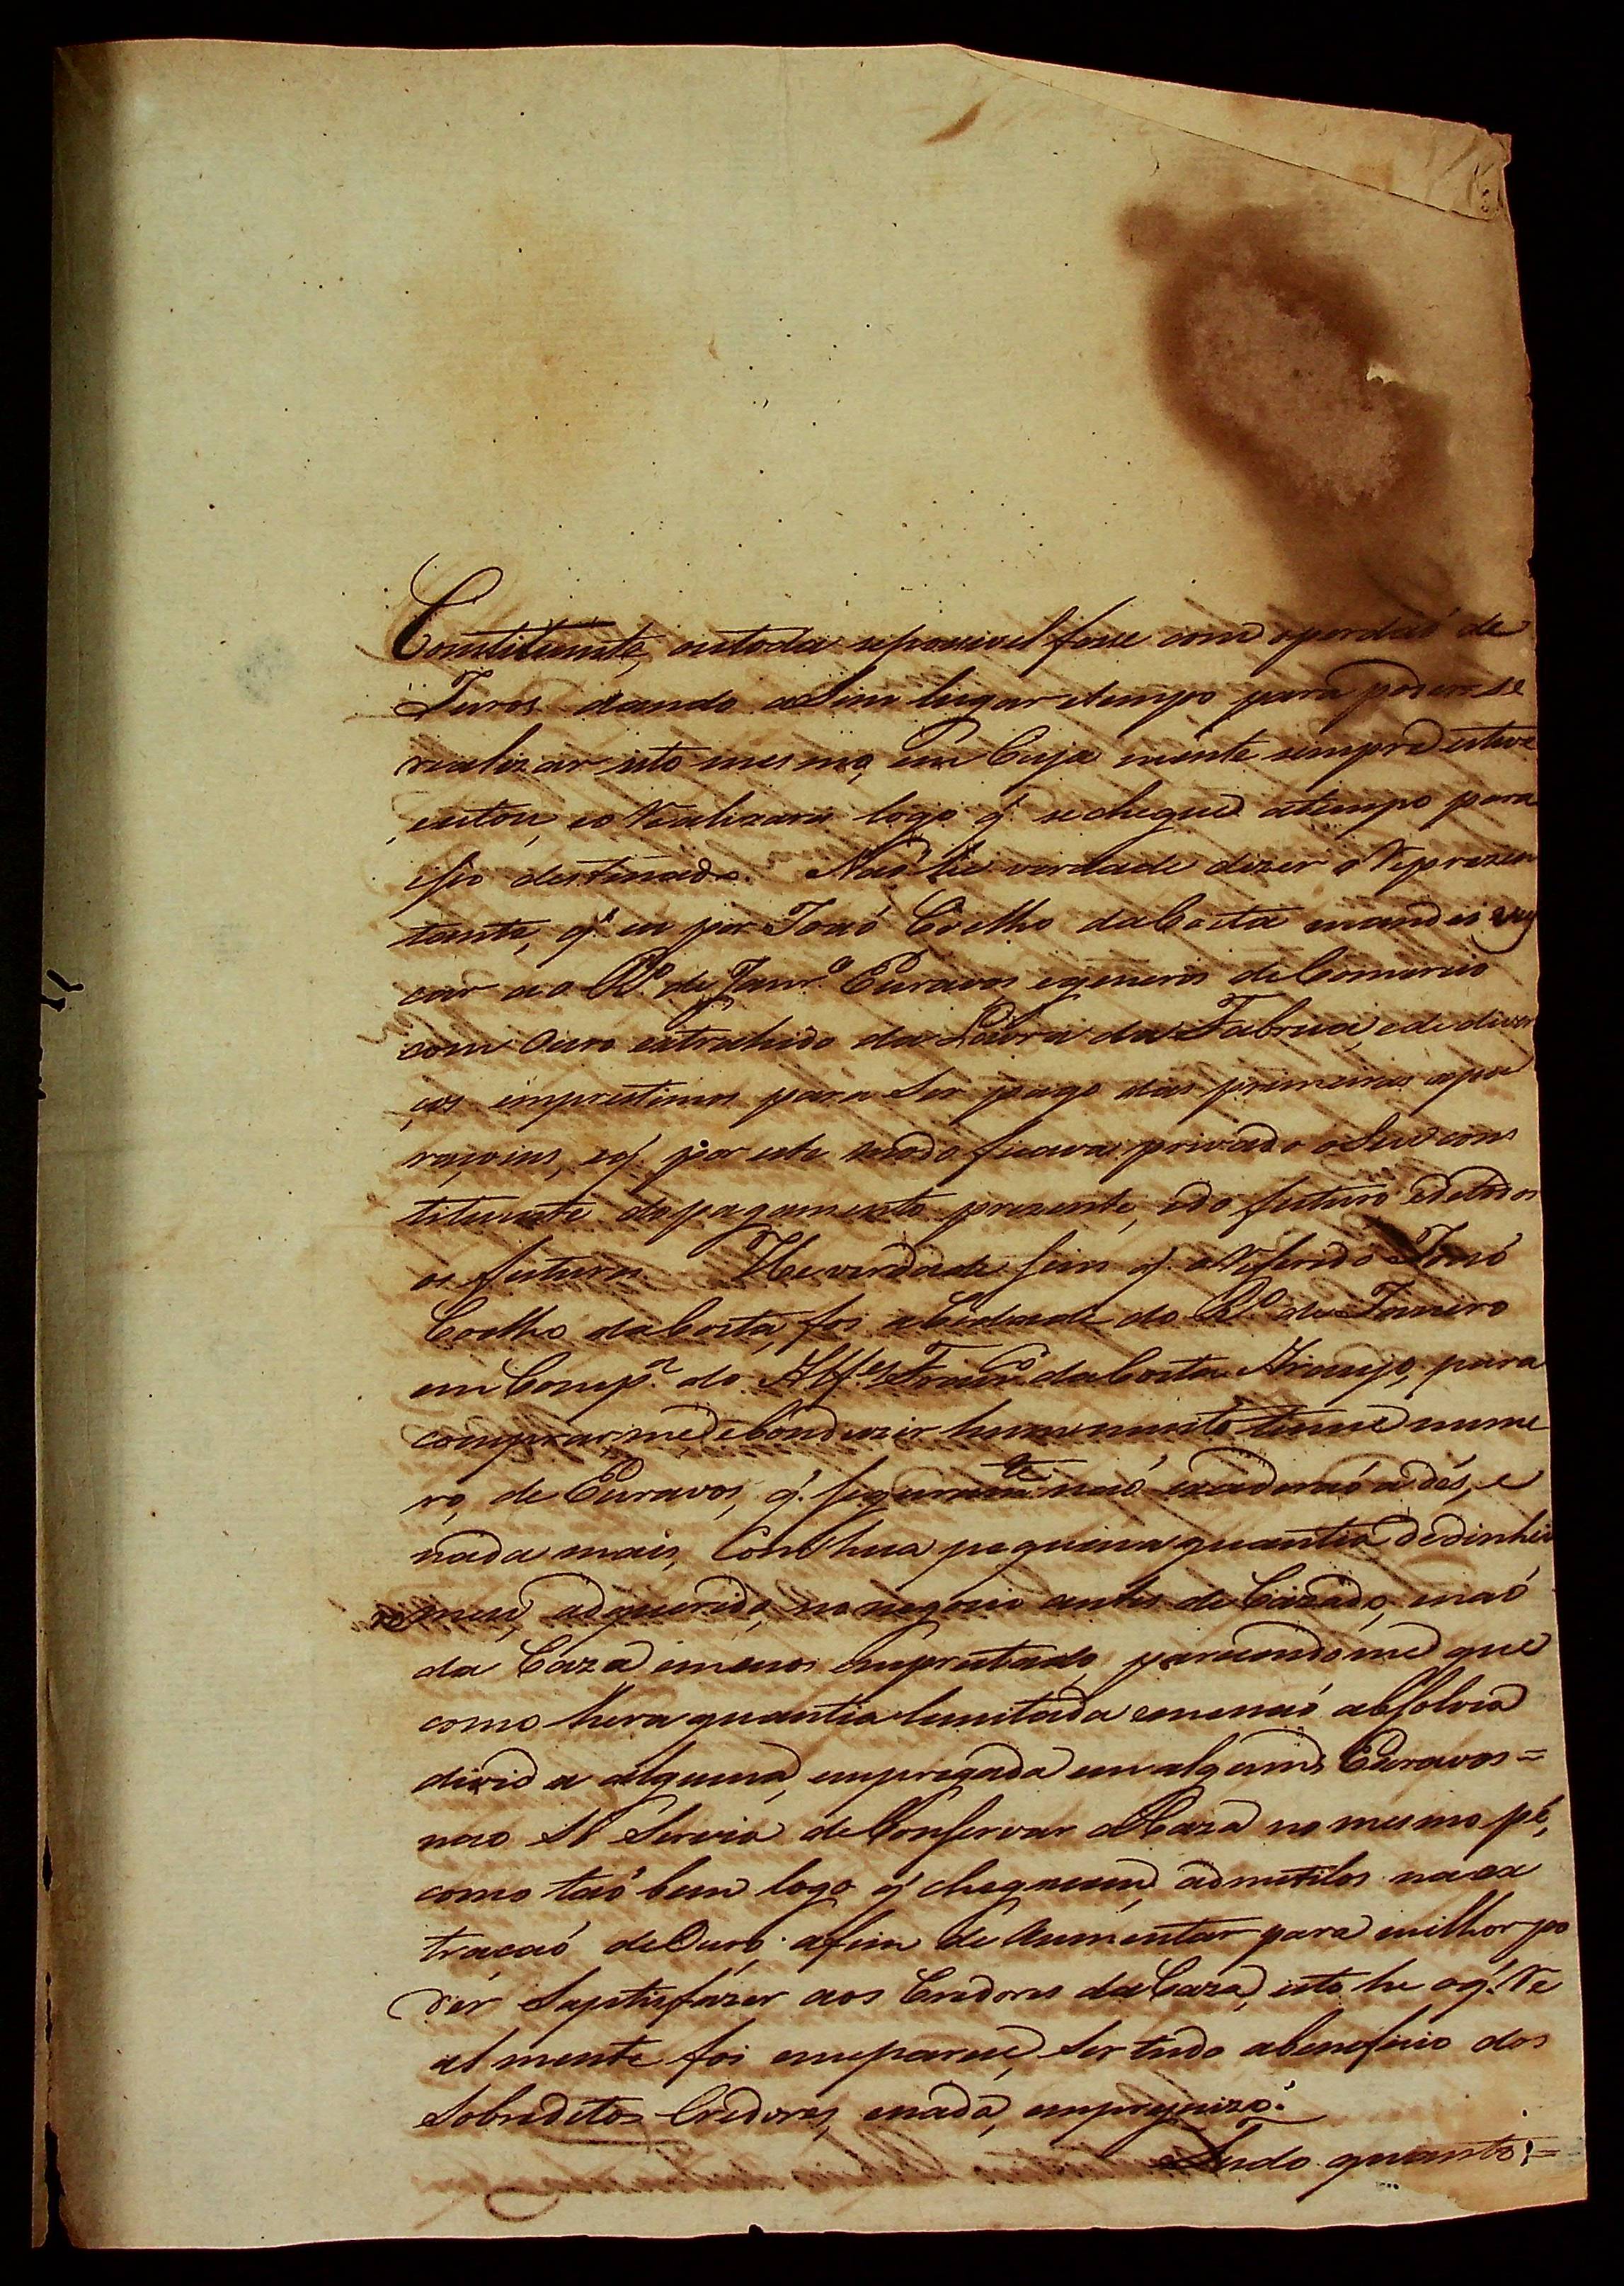 Constituente, ou toda se possivel fosse com o perdaó de
Juros dando assim lugar etempo para poderse
realizar isto mesmo, em Cuja mente sempre estive
, estou, eo Realizarei logo q. se chegue atempo para
isso destinado. Naó he verdade dizer o Reprezen
tante, q. eu por Joaó Coelho da Costa mandei bus
car ao R.º de Janr.º Escravos egeneros de Comercio
com Ouro extrahido da Lavra da Fabrica, e de diver
,ços emprestimos para Ser pago das primeiras apu
raçoins, eq. por este modo ficava privado o Seu cons
tituente do pagamento prezente, e do futuro e de todos
os futuros. He verdade sim q. o Referido Joaó
Coelho da Costa, foi a Cidade do R.º de Janeiro
em Comp.ª do Alf.es Fran.co da Costa Araujo, para
comprarme e Conduzir hum muito tenue nume
ro, de Escravos, q. seguram.te naó excederaó a dés, e
nada mais, Com hua pequena quantia de dinhei
ro meu, adquerido, no negocio antes de Cazado, enaó
da Caza emenos emprestado, parecendome que
como hera quantia lemitada eme naó absolvia
divida alguma, empregada em alguns Escravos=
naó Só Servia de Conservar a Caza no mesmo pé,
como taó bem logo q. chegacem, admetilos na ex
traçaó de Ouro, afim de Aumentar para milhor po
der Saptisfazer aos Credores da Caza, isto he oq. Re
almente foi emeparece, Ser tudo abeneficio dos
Sobreditos Credores, enada, emprejuizo.
Tudo quanto:=